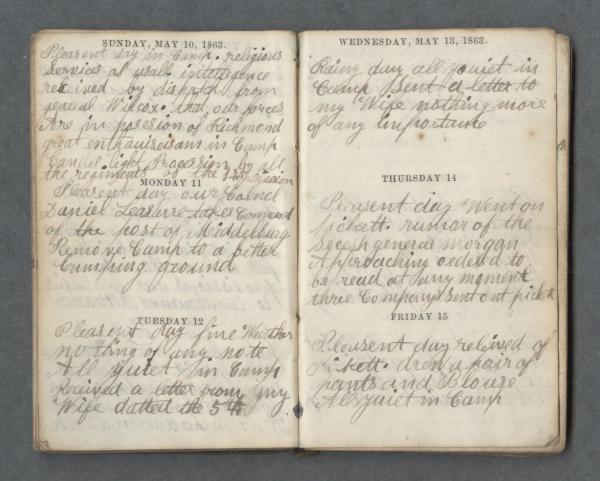 SUNDAY, MAY 10, 1863.
Pleasent day in Camp. religious
Services as usall. intelegence
received by dispatch from
general Wilcox. that our forces
Are in possesion of Richmond
great enthauiseisam in Camp
Candel light Procession by all
the regiments of the 1st Division
MONDAY 11
Pleasent day our Colnel
Daniel Leasure takes Command
of the post of Middelburg
Remove Camp to a better
Camping ground
TUESDAY 12
Pleasent day fine Weather
nothing of any note
All quiet in Camp
Received a letter from my
Wife datted the 5th
WEDNESDAY, MAY 13, 1863.
Rainy day all quiet in
Camp Sent a letter to
my Wife nothing more
of any importance
THURSDAY 14
Pleasent day Went on
Pickett. rumor of the
Secesh general Morgan
Approaching ordered to
be read at any moment
three Companys sent out pickett
FRIDAY 15
Pleasent day releived of
Pickett. drew a pair of
pants and Blouse
All quiet in Camp